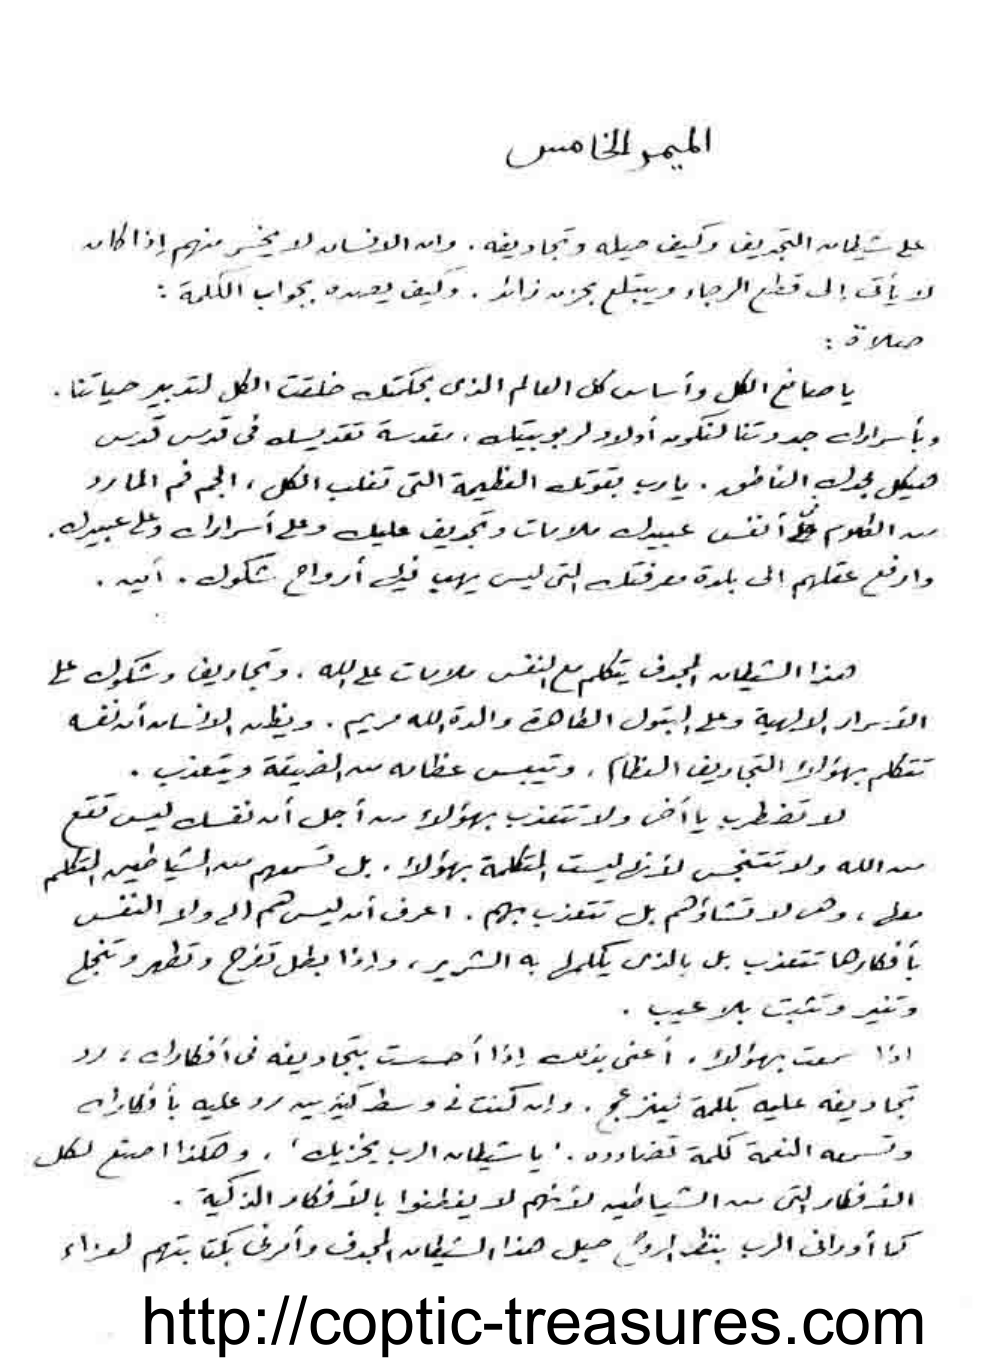 الميمر الخامس
على شيطان التجديف وكيف حيله وتجاديفه . وان الانسان لا يخسر منهم إذا كان
لا يأتى إلى قطع الرجاء ويبتلع بحزن زائد . وكيف يصده بجواب الكلمة :
صلاة :
يا صانع الكل وأساس كل العالم الذى بحكمتك خلقت الكل لتدبير حياتنا .
وبأسرارك جددتنا لنكون أولاد لربوبيتك ، مقدسة تقديسك فى قدس قدس
هيكل مجدك الناطق . يارب بقوتك العظيمة التى تغلب الكل ، الجم فم المارد
من الكلوم فى أنفس عبيدك ملامات وتجديف عليك وعلى أسرارك وعلى عبيدك .
وارفع عقلهم الى بلدة معرفتك التى ليس يهب فيها أرواح شكوك . آمين .
هذا الشيطان المجدف يتكلم مع النفس ملامات على الله ، وتجاديف وشكوك على
الأسرار الالهية وعلى البتول الطاهرة والدة الله مريم . ويظن الانسان أن نفسه
تتكلم بهؤلاء التجاديف العظام ، وتيبس عظامه من الضيقة ويتعذب .
لا تضطرب يا أخى ولا تتعذب بهؤلاء من أجل أن نفسك ليس تقع
من الله ولا تتنجس لأنها ليست المتكلمة بهؤلاء . بل تسمعهم من الشياطين المتكلم
معها ، وهى لا تشاؤهم بل تتعذب بهم . اعرف أن ليس هم لها ولا النفس
بأفكارها تتعذب بل بالذى يكلمها به الشرير ، وإذا بطل تفرح وتطهر وتنجلى
وتنير وتثبت بلا عيب .
اذا سمعت بهؤلاء . أعنى بذلك إذا أحسست بتجاديفه فى أفكارك ، رد
تجاديفه عليه بكلمة فينزعج . وان كنت فى وسط كثيرين رد عليه بأفكارك
وتسمعه النغمة كلمة تضادده . ' يا شيطان الرب يخزيك ' . وهكذا اصنع لكل
الأفكار التى من الشياطين لأنهم لا يفطنوا بالأفكار الذكية .
كما أورانى الرب بنظر الروح حيل هذا الشيطان المجدف وأمرنى بكتابتهم لعزاء
http://coptic-treasures.com